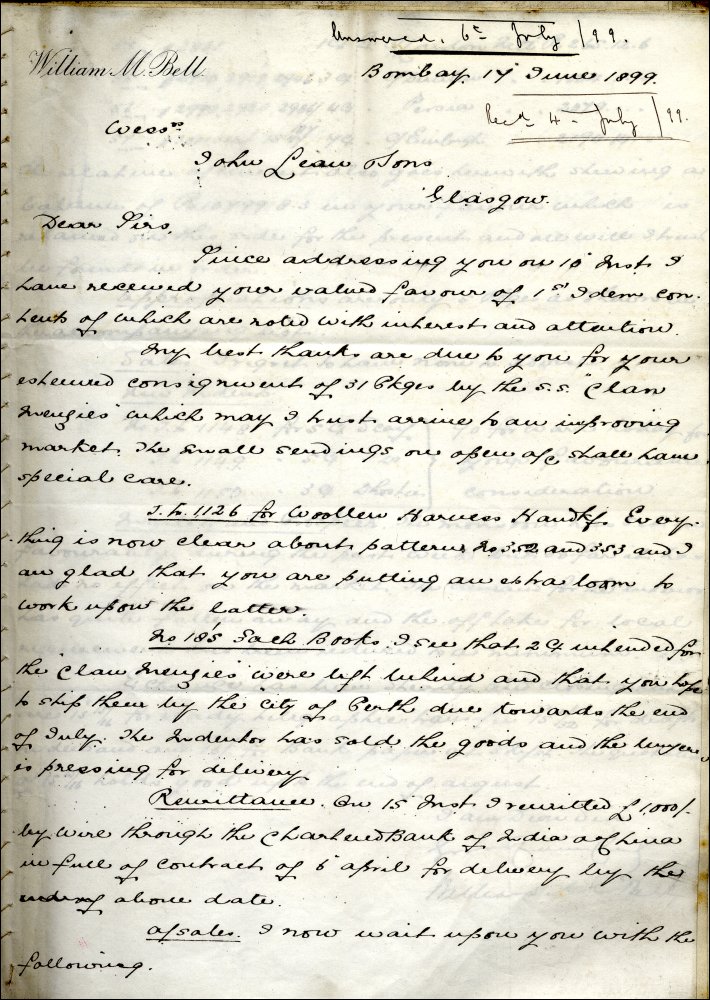 Answered. 6th July /99.
William M. Bell.
Bombay, 17 June 1899.
Recd 4 - July /99.
Messrs
John Lean & Sons
Glasgow.
Dear Sirs,
Since addressing you on 10 Inst. I
have received your valued favour of 1st Idem con-
tents of which are noted with interest and attention.
My best thanks are due to you for your
esteemed consignment of 31 Pkges by the S.S. "Clan
Menzies" which may I trust arrive to an improving
market. The small sendings on open a/c shall have
special care.
1126 for Woollen Harness Handkfs. Every-
thing is now clear about patterns No 352 and 353 and I
am glad that you are putting an extra loom to
work upon the latter.
No 185 Books. I see that 2 intended for
the Clan Menzies were left behind and that you hope
to ship them by the "City of Perth due towards the end
of July. The Indentor has sold the goods and the buyer
is pressing for delivery.
Remittance. On 15 Inst. I remitted £1000/-
by wire through the Chartered Bank of India & China
in full of contract of 6 April for delivery by the
above date.
a/sales. I now wait upon you with the
following.